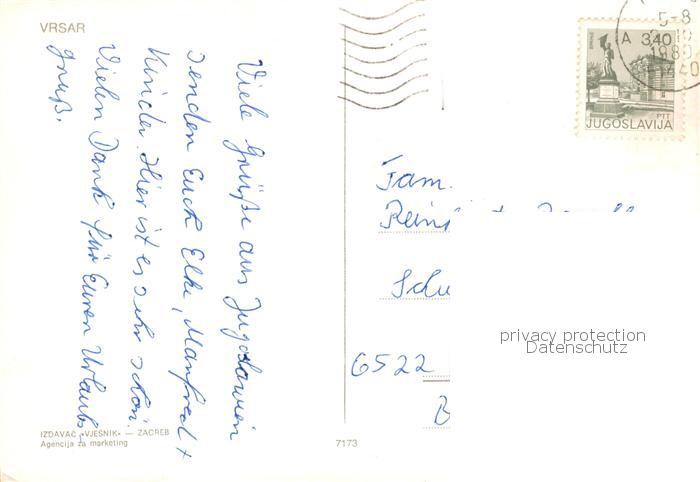 VRSAR
Viele Grüße aus Jugoslawien
senden Euch Elke, Manfred +
Kinder. Hier ist es sehr schön.
Vielen Dank für Euren Urlaubs-
gruß.
IZDAVAČ «VJESNIK» — ZAGREB
Agencija za marketing
7173
5-8
1980
A 3,40
PTT
JUGOSLAVIJA
Fam.
6522
privacy protection
Datenschutz